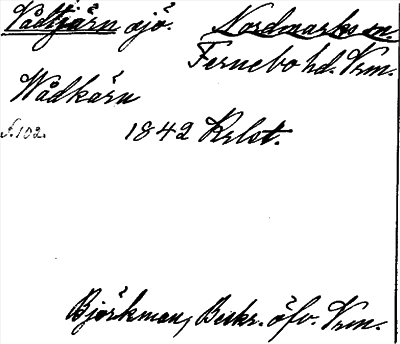 Vådtjärn sjö. Nordmarks sn.
Fernebo hd. Vrm.
Wådkärn
S. 102. 1842 Krlst.
Björkman, Beskr. öfv. Vrm.